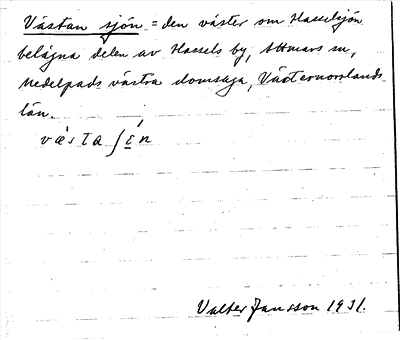 Västan sjön = den väster om Hasselsjön
belägna delen av Hassels by, Attmars sn,
Medelpads västra domsaga, Västernorrlands
län.
væ̀sta ʃɛ́n
Valter Jansson 1931.